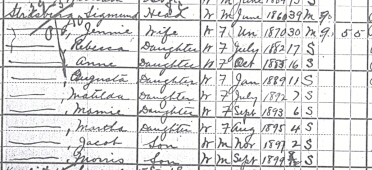 Sigmund Head W M June 1860 39 M 9
Jennie Wife W F Un 1870 30 M 9 5 5
Rebecca Daughter W F July 1882 17 S
Anne Daughter W F Oct 1883 16 S
Augusta Daughter W F Jan 1889 11 S
Matilda Daughter W F July 1892 7 S
Mamie Daughter W F Sept 1893 6 S
Martha Daughter W F Aug 1895 4 S
Jacob Son W M Nov 1897 2 S
Morris Son W M Sept 1899 S